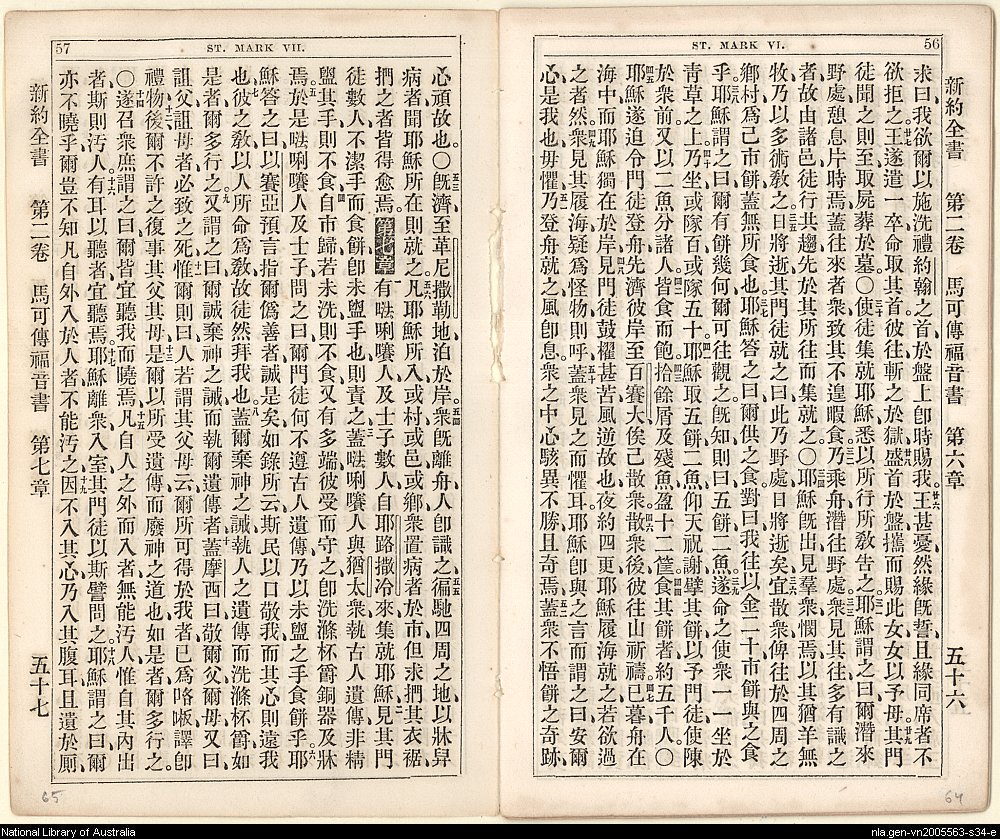 56
ST. MARK VI.
新約全書 第二卷 馬可傳福音書 第六章 五十六
求曰、我欲爾以施洗禮約翰之首、於盤上卽時賜我、王甚憂、然緣旣誓、且緣同席者、不
欲拒之、王遂遣一卒、命取其首、彼往斬之於獄、盛首於盤、攜而賜此女、女以予母、其門
徒聞之則至、取屍葬於墓。〇使徒集就耶穌、悉以所行所敎告之、耶穌謂之曰、爾潛來
野處、憩息片時焉、蓋往來者衆、致其不遑暇食、乃乘舟潛往野處、衆見其往、多有識之
者、故由諸邑徒行共趨、先於其所往而集就之。〇耶穌旣出、見羣衆憫焉、以其猶羊無
牧、乃以多術敎之、日將逝、其門徒就之曰、此乃野處、日將逝矣、宜散衆、俾往於四周之
鄕村、爲己市餅、蓋無所食也、耶穌答之曰、爾供之食、對曰、我往以金二十市餅、與之食
乎、耶穌謂之曰、爾有餅幾何、爾可往觀之、旣知則曰、五餅二魚、遂命之使衆一一坐於
青草之上、乃坐或隊百、或隊五十、耶穌取五餅二魚、仰天祝謝、擘其餅、以予門徒、使陳
於衆前、又以二魚分諸人、皆食而飽、拾餘屑及殘魚、盈十二筐、食其餅者約五千人〇
耶穌遂迫令門徒登舟、先濟彼岸、至百賽大、俟己散衆、散衆後、彼往山祈禱、已暮、舟在
海中、而耶穌獨在於岸、見門徒鼓櫂甚苦、風逆故也、夜約四更、耶穌履海就之、若欲過
之者然、衆見其履海、疑爲怪物則呼、蓋衆見之而懼耳、耶穌卽與之言、而謂之曰、安爾
心、是我也、毋懼、乃登舟就之、風卽息、衆之中心駭異不勝、且奇焉、蓋衆不悟餅之奇跡、
64
57
ST. MARK VII.
心頑故也。〇旣濟、至革尼撒勒地、泊於岸、衆旣離舟、人卽識之、徧馳四周之地、以牀舁
病者、聞耶穌所在則就之、凡耶穌所入、或村或邑或鄕、衆置病者於市、但求捫其衣裾、
捫之者皆得愈焉。第七章 有㗌唎㘔人、及士子數人、自耶路撒冷來、集就耶穌、見其門
徒數人、不潔手而食餅、卽未盥手也、則責之、蓋㗌唎㘔人與猶太衆、執古人遺傳、非精
盥其手則不食、自市歸、若未洗則不食、又有多端、彼受而守之、卽洗滌杯爵銅器及牀
焉、於是㗌唎㘔人及士子問之曰、爾門徒何不遵古人遺傳、乃以未盥之手食餅乎、耶
穌答之曰、以賽亞預言指爾僞善者誠是矣、如錄所云、斯民以口敬我、而其心則遠我
也、彼之敎、以人所命爲敎、故徒然拜我也、蓋爾棄神之誡、執人之遺傳、而洗滌杯爵、如
是者爾多行之、又謂之曰、爾誠棄神之誡、而執爾遺傳者、蓋摩西曰、敬爾父爾母、又曰、
詛父詛母者、必致之死、惟爾則曰、人若謂其父母云、爾所可得於我者、已爲咯㘔、譯卽
禮物、後爾不許之復事其父其母、是爾以所受遺傳、而廢神之道也、如是者爾多行之。
〇遂召衆庶謂之曰、爾皆宜聽我而曉焉、凡自人之外而入者、無能汚人、惟自其內出
者、斯則汚人、有耳以聽者宜聽焉、耶穌離衆入室、其門徒以斯譬問之、耶穌謂之曰、爾
亦不曉乎、爾豈不知凡自外入於人者、不能汚之、因不入其心、乃入其腹耳、且遺於厠、
新約全書 第二卷 馬可傳福音書 第七章 五十七
65
National Library of Australia
nla.gen-vn2005563-s34-e